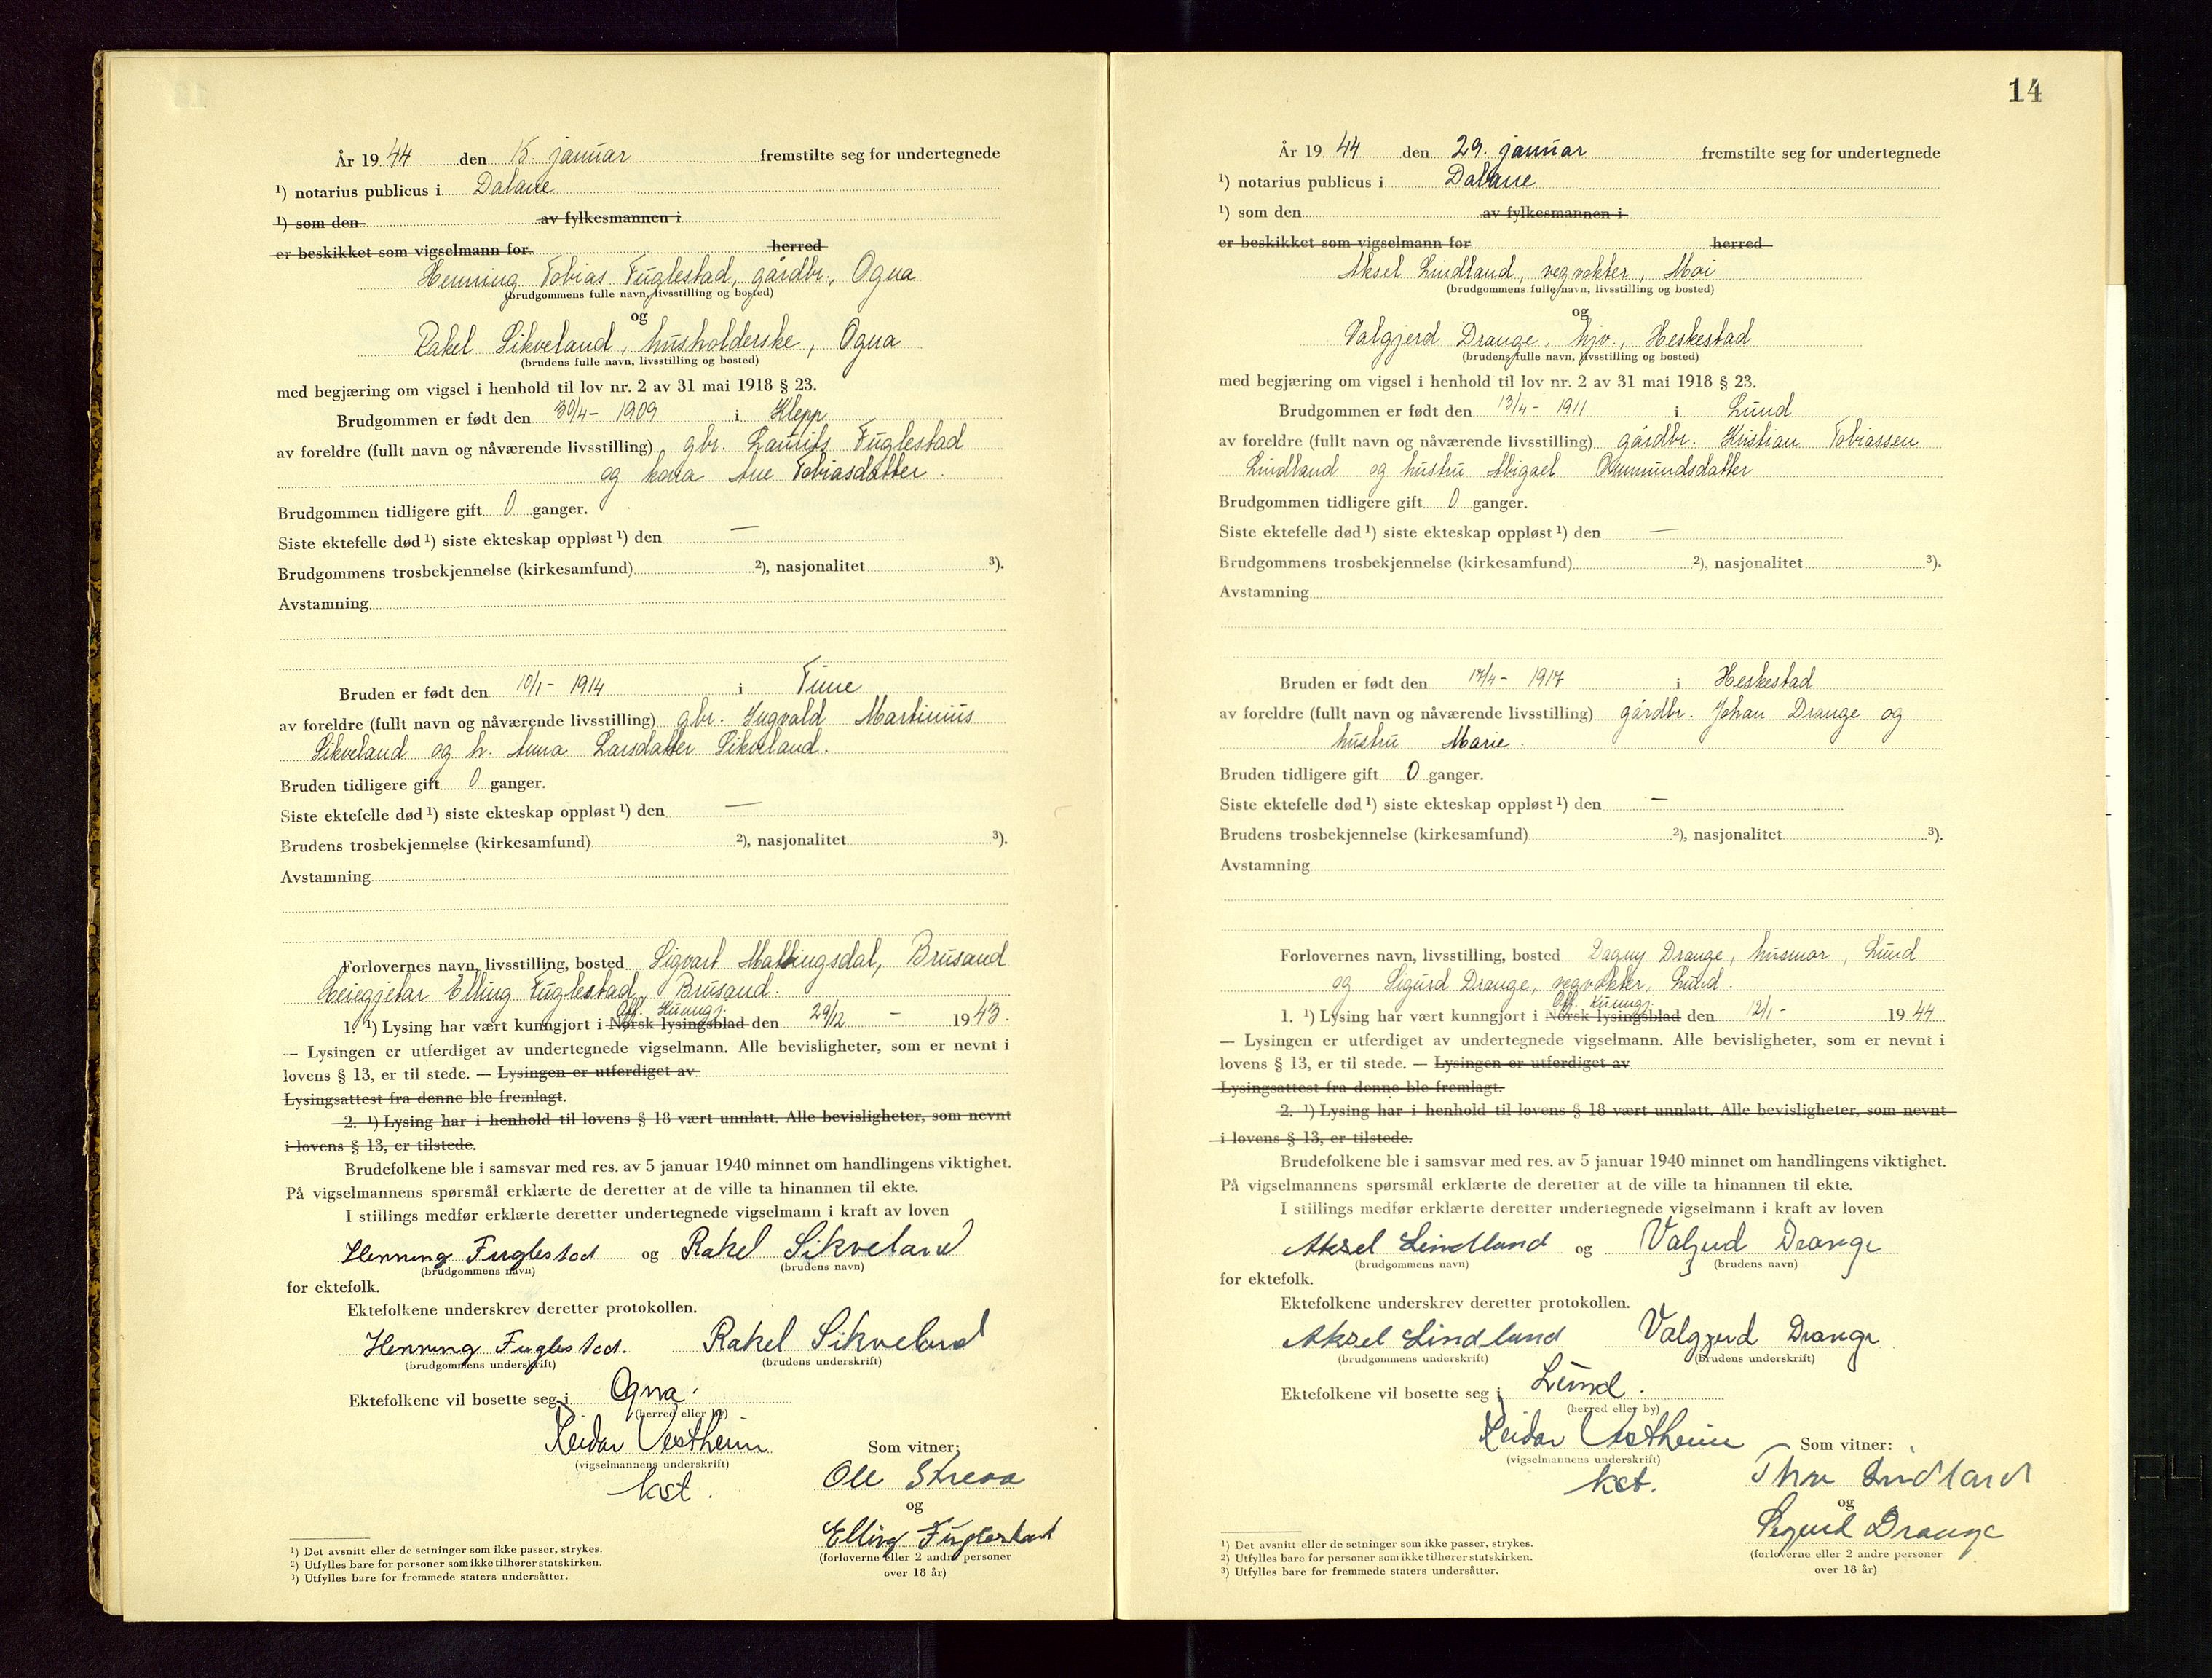 År 19 44 den 15. januar fremstilte seg for undertegnede
¹) notarius publicus i Dalane
¹) som den av fylkesmannen i
er beskikket som vigselmann for herred
Henning Tobias Fuglestad, gårdbr., Ogna
(brudgommens fulle navn, livsstilling og bosted)
og
Rakel Sikveland, husholderske, Ogna
(brudens fulle navn, livsstilling og bosted)
med begjæring om vigsel i henhold til lov nr. 2 av 31 mai 1918 § 23.
Brudgommen er født den 30/4 - 1909 i Klepp
av foreldre (fullt navn og nåværende livsstilling) gbr. Laurits Fuglestad
og kona Ane Tobiasdatter.
Brudgommen tidligere gift 0 ganger.
Siste ektefelle død ¹) siste ekteskap oppløst ¹) den —
Brudgommens trosbekjennelse (kirkesamfund) ²), nasjonalitet ³).
Avstamning
Bruden er født den 10/1 - 1914 i Time
av foreldre (fullt navn og nåværende livsstilling) gbr. Ingvald Martinius
Sikveland og h. Anna Larsdatter Sikveland.
Bruden tidligere gift 0 ganger.
Siste ektefelle død ¹) siste ekteskap oppløst ¹) den —
Brudens trosbekjennelse (kirkesamfund) ²), nasjonalitet ³).
Avstamning
Forlovernes navn, livsstilling, bosted Sigvart Mattingsdal, Brusand
Heiegjetar Elling Fuglestad, Brusand.
Off. Kunngj.
1. ¹) Lysing har vært kunngjort i Norsk lysingsblad den 29/12 - 19 43.
— Lysingen er utferdiget av undertegnede vigselmann. Alle bevisligheter, som er nevnt i
lovens § 13, er til stede. — Lysingen er utferdiget av
Lysingsattest fra denne ble fremlagt.
2. ¹) Lysing har i henhold til lovens § 18 vært unnlatt. Alle bevisligheter, som nevnt
i lovens § 13, er tilstede.
Brudefolkene ble i samsvar med res. av 5 januar 1940 minnet om handlingens viktighet.
På vigselmannens spørsmål erklærte de deretter at de ville ta hinannen til ekte.
I stillings medfør erklærte deretter undertegnede vigselmann i kraft av loven
Henning Fuglestad og Rakel Sikveland
(brudgommens navn) (brudens navn)
for ektefolk.
Ektefolkene underskrev deretter protokollen.
Henning Fuglestad. Rakel Sikveland
(brudgommens underskrift) (brudens underskrift)
Ektefolkene vil bosette seg i Ogna.
(herred eller by)
Reidar Vestheim Som vitner:
(vigselmannens underskrift)
kst. Ole
og
Elling Fuglestad
(forloverne eller 2 andre personer
over 18 år)
¹) Det avsnitt eller de setninger som ikke passer, strykes.
²) Utfylles bare for personer som ikke tilhører statskirken.
³) Utfylles bare for fremmede staters undersåtter.
14
År 19 44 den 29. januar fremstilte seg for undertegnede
¹) notarius publicus i Dalane
¹) som den av fylkesmannen i
er beskikket som vigselmann for herred
Aksel Lindland, vegvokter, Moi
(brudgommens fulle navn, livsstilling og bosted)
og
Valgjerd Drange, hjv., Heskestad
(brudens fulle navn, livsstilling og bosted)
med begjæring om vigsel i henhold til lov nr. 2 av 31 mai 1918 § 23.
Brudgommen er født den 13/4 - 1911 i Lund
av foreldre (fullt navn og nåværende livsstilling) gårdbr. Kristian Tobiassen
Lindland og hustru Abigael Ommundsdatter
Brudgommen tidligere gift 0 ganger.
Siste ektefelle død ¹) siste ekteskap oppløst ¹) den —
Brudgommens trosbekjennelse (kirkesamfund) ²), nasjonalitet ³).
Avstamning
Bruden er født den 17/4 - 1917 i Heskestad
av foreldre (fullt navn og nåværende livsstilling) gårdbr. Johan Drange og
hustru Marie.
Bruden tidligere gift 0 ganger.
Siste ektefelle død ¹) siste ekteskap oppløst ¹) den —
Brudens trosbekjennelse (kirkesamfund) ²), nasjonalitet ³).
Avstamning
Forlovernes navn, livsstilling, bosted Dagny Drange, husmor, Lund
og Sigurd Drange, vegvokter, Lund.
Off. Kunngj.
1. ¹) Lysing har vært kunngjort i Norsk lysingsblad den 12/1 - 19 44
— Lysingen er utferdiget av undertegnede vigselmann. Alle bevisligheter, som er nevnt i
lovens § 13, er til stede. — Lysingen er utferdiget av
Lysingsattest fra denne ble fremlagt.
2. ¹) Lysing har i henhold til lovens § 18 vært unnlatt. Alle bevisligheter, som nevnt
i lovens § 13, er tilstede.
Brudefolkene ble i samsvar med res. av 5 januar 1940 minnet om handlingens viktighet.
På vigselmannens spørsmål erklærte de deretter at de ville ta hinannen til ekte.
I stillings medfør erklærte deretter undertegnede vigselmann i kraft av loven
Aksel Lindland og Valgerd Drange
(brudgommens navn) (brudens navn)
for ektefolk.
Ektefolkene underskrev deretter protokollen.
Aksel Lindland Valgjerd Drange
(brudgommens underskrift) (brudens underskrift)
Ektefolkene vil bosette seg i Lund.
(herred eller by)
Reidar Vestheim Som vitner:
(vigselmannens underskrift)
kst. Lindland
og
Sigurd Drange
(forloverne eller 2 andre personer
over 18 år)
¹) Det avsnitt eller de setninger som ikke passer, strykes.
²) Utfylles bare for personer som ikke tilhører statskirken.
³) Utfylles bare for fremmede staters undersåtter.